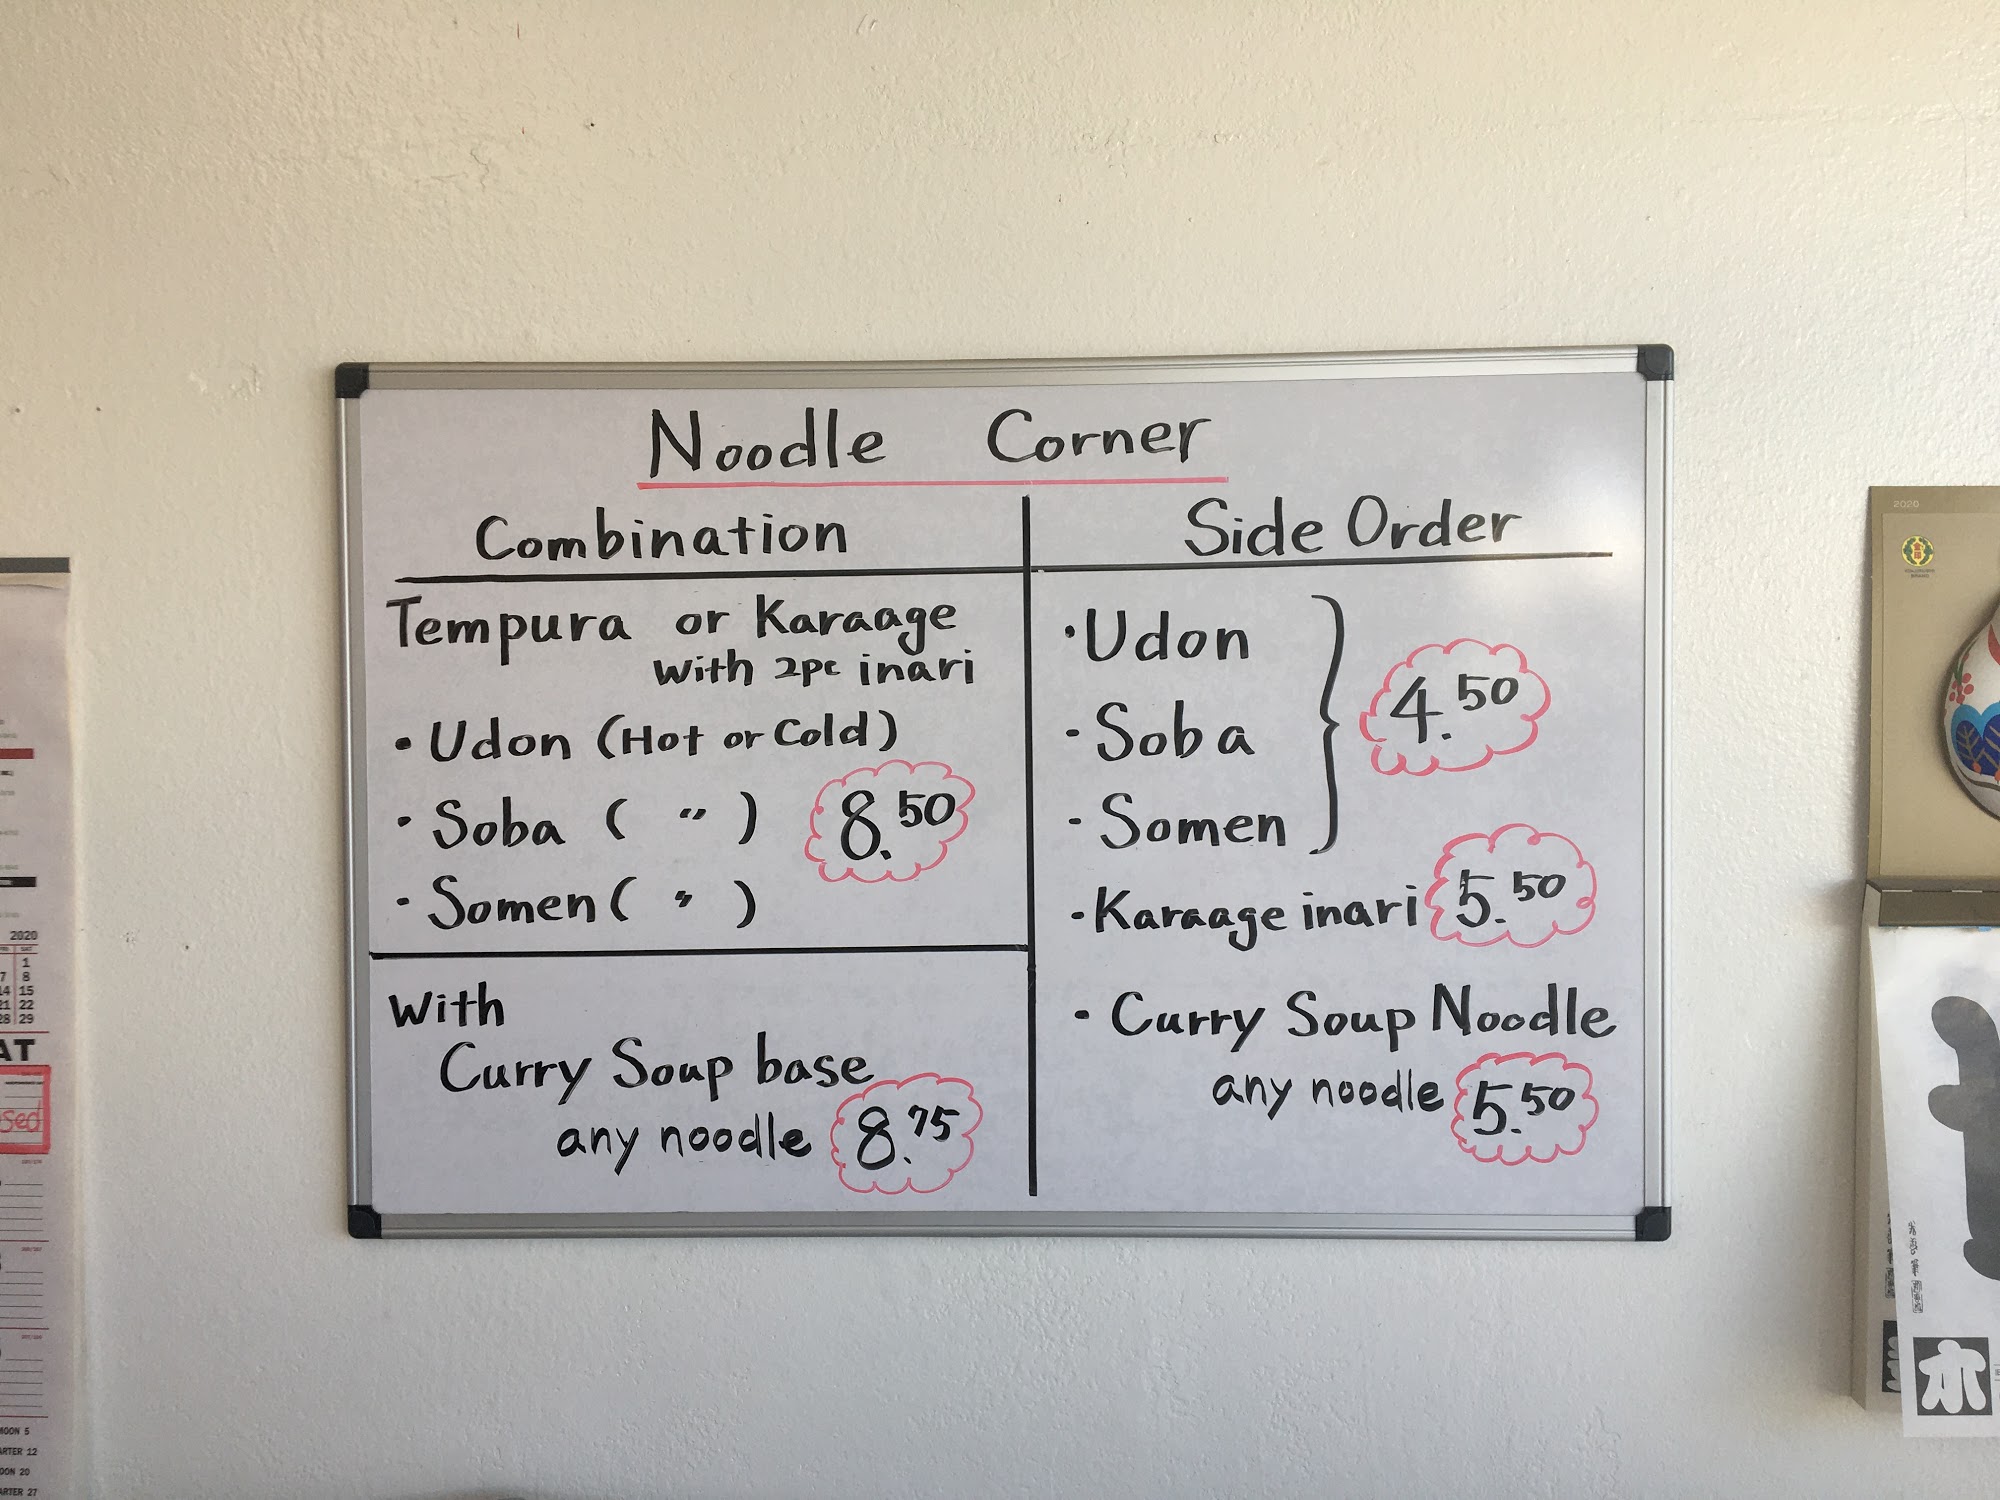 Noodle Corner
Combination
Tempura or Karaage
with 2pc inari
• Udon (Hot or Cold)
• Soba ( " )
• Somen ( " )
8.50
With
Curry Soup base
any noodle 8.75
Side Order
• Udon
• Soba
• Somen
4.50
• Karaage inari 5.50
• Curry Soup Noodle
any noodle 5.50
2020
SAT
1
7 8
14 15
21 22
28 29
AT
MOON 5
ARTER 12
OON 20
ARTER 27
2020